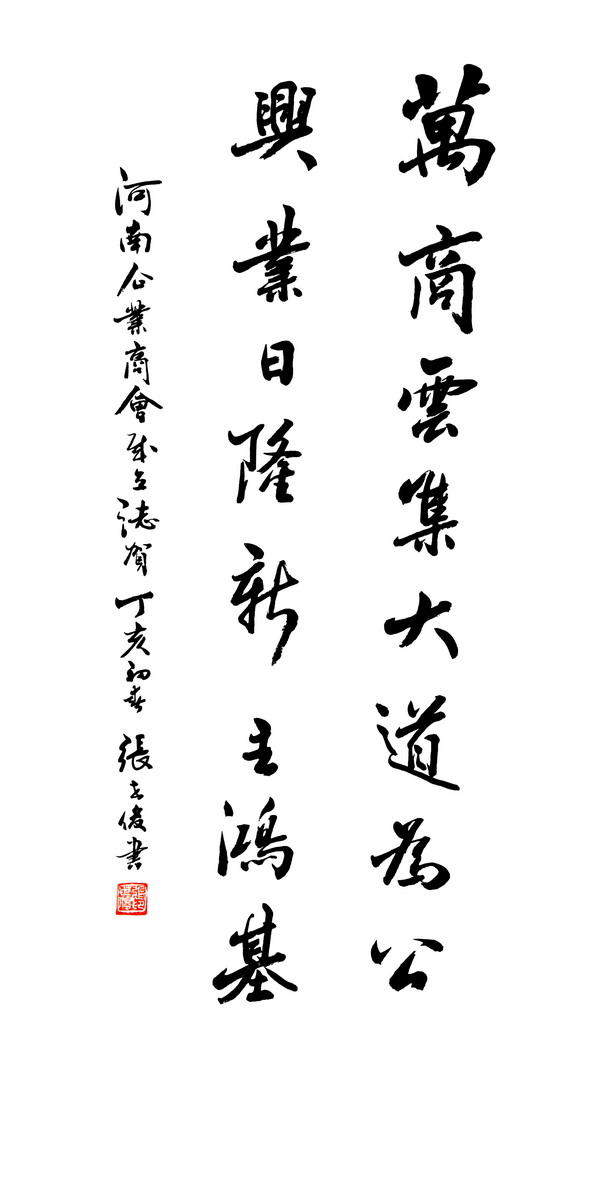 萬商雲集大道為公
興業日隆新主鴻基
河南企業商會成立誌賀 丁亥初春 張俊書